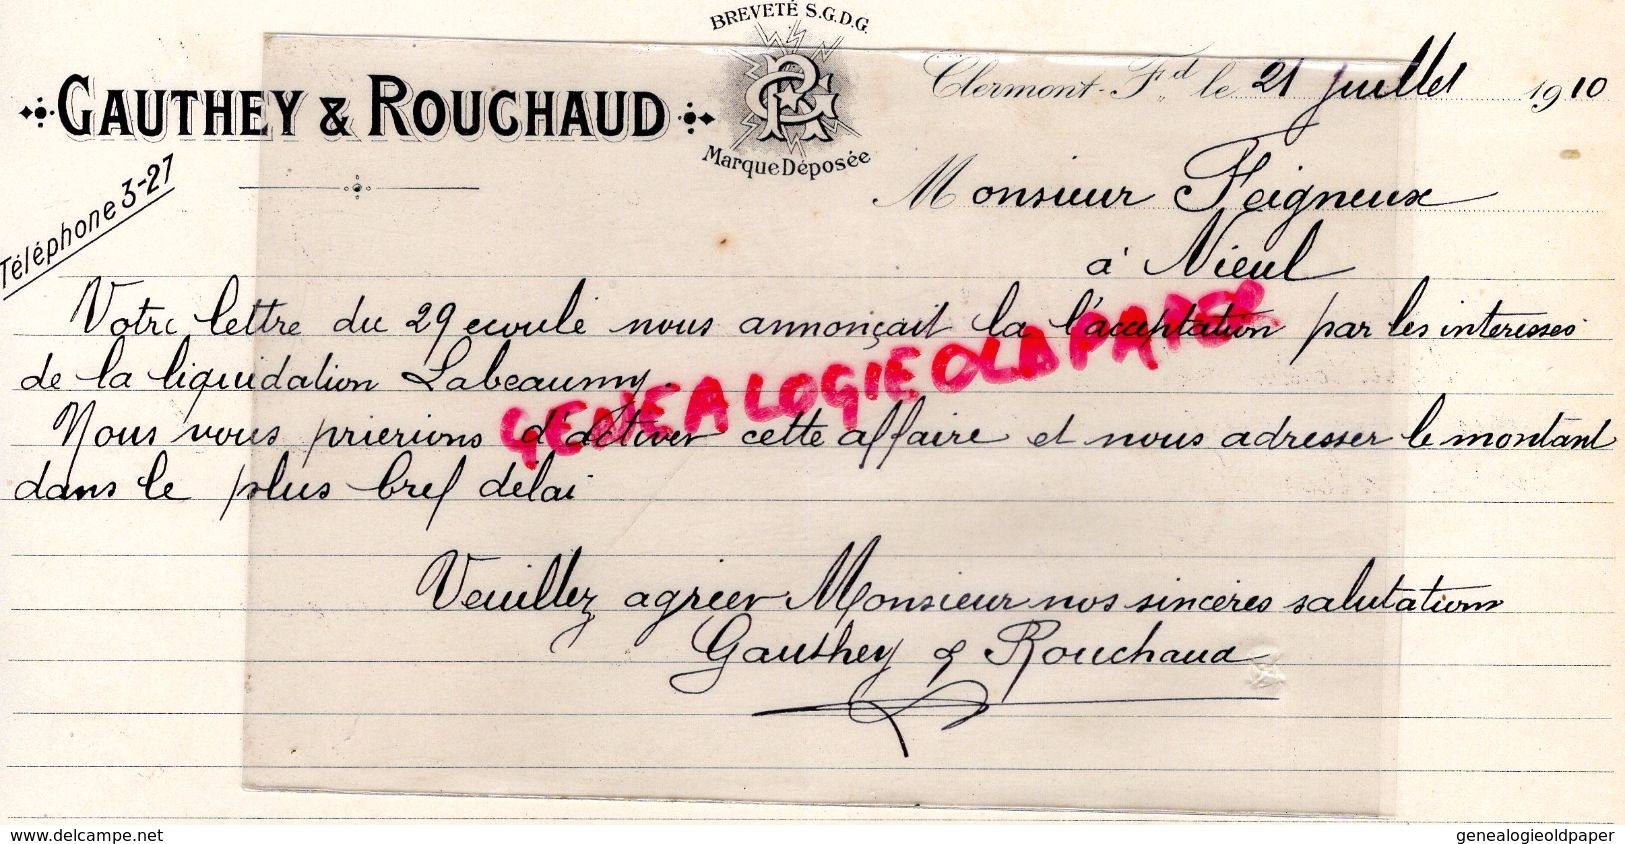 BREVETÉ S.G.D.G.
GAUTHEY & ROUCHAUD
Marque Déposée
Téléphone 3-27
Clermont-Fd le 21 juillet 1910
Monsieur Feigneux
à Nieul
Votre lettre du 29 ecoulé nous annonçait la l'acceptation par les interesses
de la liquidation Labeaumy.
Nous vous prierions d'activer cette affaire et nous adresser le montant
dans le plus bref delai
Veuillez agréer Monsieur nos sincères salutations
Gauthey & Rouchaud
GENEALOGIE OLD PAPER
www.delcampe.net
genealogieoldpaper